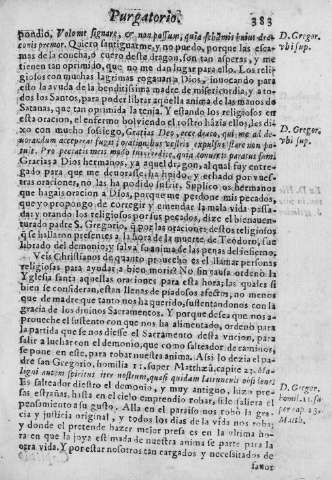 Purgatorio. 383
pondio, Volome signare, & non possum, quia
conis premor. Quiero santiguarme, y no puedo, porque las esca-
mas de la concha, ò cuero deste dragon, son tan asperas, y me
tienen tan oprimido, que no me dan lugar para ello. Los reli-
giosos con muchas lagrimas rogauan à Dios, inuocando para es-
to la ayuda de la benditissima madre de misericordia, y a to-
dos los Santos, para poder librar aquella anima de las manos de
Satanas, que tan oprimida la tenia. Y estando los religiosos en
esta oracion, el enfermo bolviendo el rostro hàzia ellos, les di-
xo con mucho sossiego, Gratias Deo, ecce draco, qui me ad de-
vorandum acceperat fugit, orationibus vestris expulsus stare non po-
tuit. Pro peccatis meis modo intercedite, quia converti paratus sum.
Gracias a Dios hermanos, ya aquel dragon, al qual fuy entre-
gado para que me devorasse, ha hpido, y echado por vues-
tras oraciones, no las ha podido sufrir. Suplico os hermanos
que hagais oracion à Dios, porque me perdone mis pecados,
que yo propongo de corregir y emendar la mala vida passa-
da: y orando los religiosos por sus pecados, dize el bienauen-
turado padre S. Gregorio, q por las oraciones destos religiosos
q se hallaron presentes a la hora de la muerte de Teodoro, fue
librado del demonio, y salva su anima de las penas del infierno.
Veis Christianos de quanto prouecho es el llamar personas
religiosas para ayudar a bien morir? No sin causa ordenò la
Yglesia santa aquellas oraciones para esta hora; las quales si
bien se consideran, estan llenas de piadosos afectos, no menos
que de madre que tanto nos ha querido, sustentandonos con la
gracia de los diuinos Sacramentos. Y porque desea que nos a-
proueche el sustento con que nos ha alimentado, ordenò para
la partida que se nos diesse el Sacramento desta vncion, para
salir a luchar con el demonio, que como salteador de caminos,
se pone en este, para robar nuestra anima. Assi lo dezia el pa-
dre san Gregorio, homilia 11. super Matthæū. capite 23. Ma-
ligni autem spiritus iter nostrum, quasi quidam latrunculi obsident.
Es salteador diestro el demonio, y muy antiguo, luzo pres
en estrañas, hasta en el cielo emprendio robar, si le saliera el
pensamiento a su gusto. Alla en el paraiso nos robò la gra-
cia y justicia original, y todos los dias de la vida nos roba;
y donde el pretende hazer mejor presa es en la vltima ho-
ra en que la joya est mada de nuestra anima se parte para la
otra vida. Y por estar nosotros tan cargados y necessitados de
fauor
D. Gregor.
vbi sup.
D. Gregor.
vbi sup.
D. Gregor.
homil. 11. su
per cap. 23.
Matth.